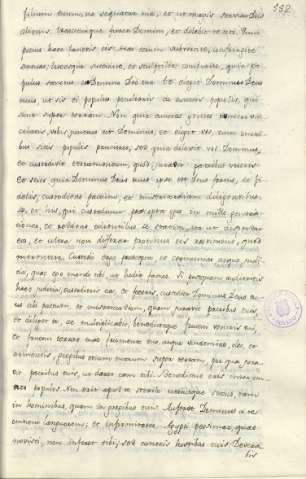 332
filium tuum, ne sequatur me, et ut magis serviat Diis
alienis. Irasceturque furor Domini, et delebit te cito. Quin
potius haec facietis eis: aras eorum subvertite, confringite
statuas, lucosque succidite, et sculptilia comburite, quia Po-
pulus sanctus es Domino Deo tuo. Te elegit Dominus Deus
tuus, ut sis ei populus peculiaris de cunctis populis, qui
sunt super terram. Non quia cunctas gentes numero vin-
cebatis, vobis junctus est Dominus, et elegit vos, cum omni-
bus sitis populis pauciores, sed quia dilexit vos Dominus,
et custodivit juramentum, quod juravit patribus vestris
Et scies quia Dominus Deus tuus ipse est Deus fortis, et fi-
delis, custodiens pactum, et misericordiam diligentibus
se, et his, qui custodiunt praecepta ejus in mille generati-
ones, et reddens odientibus se statim, ita ut disperdat
eos, et ultra non differat protinus eis restituens, quod
merentur. Custodi ergo praecepta, et ceremonias atque judi-
cia, quae ego mando tibi, ut facias
haec judicia, custodieris ea, et feceris, custodiet Dominus Deus tu-
us tibi pactum, et misericordiam, quam juravit patribus tuis,
et diliget te, ac multiplicabit, benedicetque fructui ventris tui,
et fructui terrae tuae frumento tuo, atque vindemiae, oleo, et
armentis, gregibus ovium tuarum super terram, pro qua jura-
vit patribus tuis, ut daret eam tibi. Benedictus eris inter om-
nes populos. Non erit apud te sterilis utriusque sexus, tam
in hominibus, quam in gregibus tuis. Auferet Dominus a te
omnem languorem, et infirmitates Aegypti pessimas, quas
novisti, non inferet tibi, sed cunctis hostibus tuis. Devora-
bis